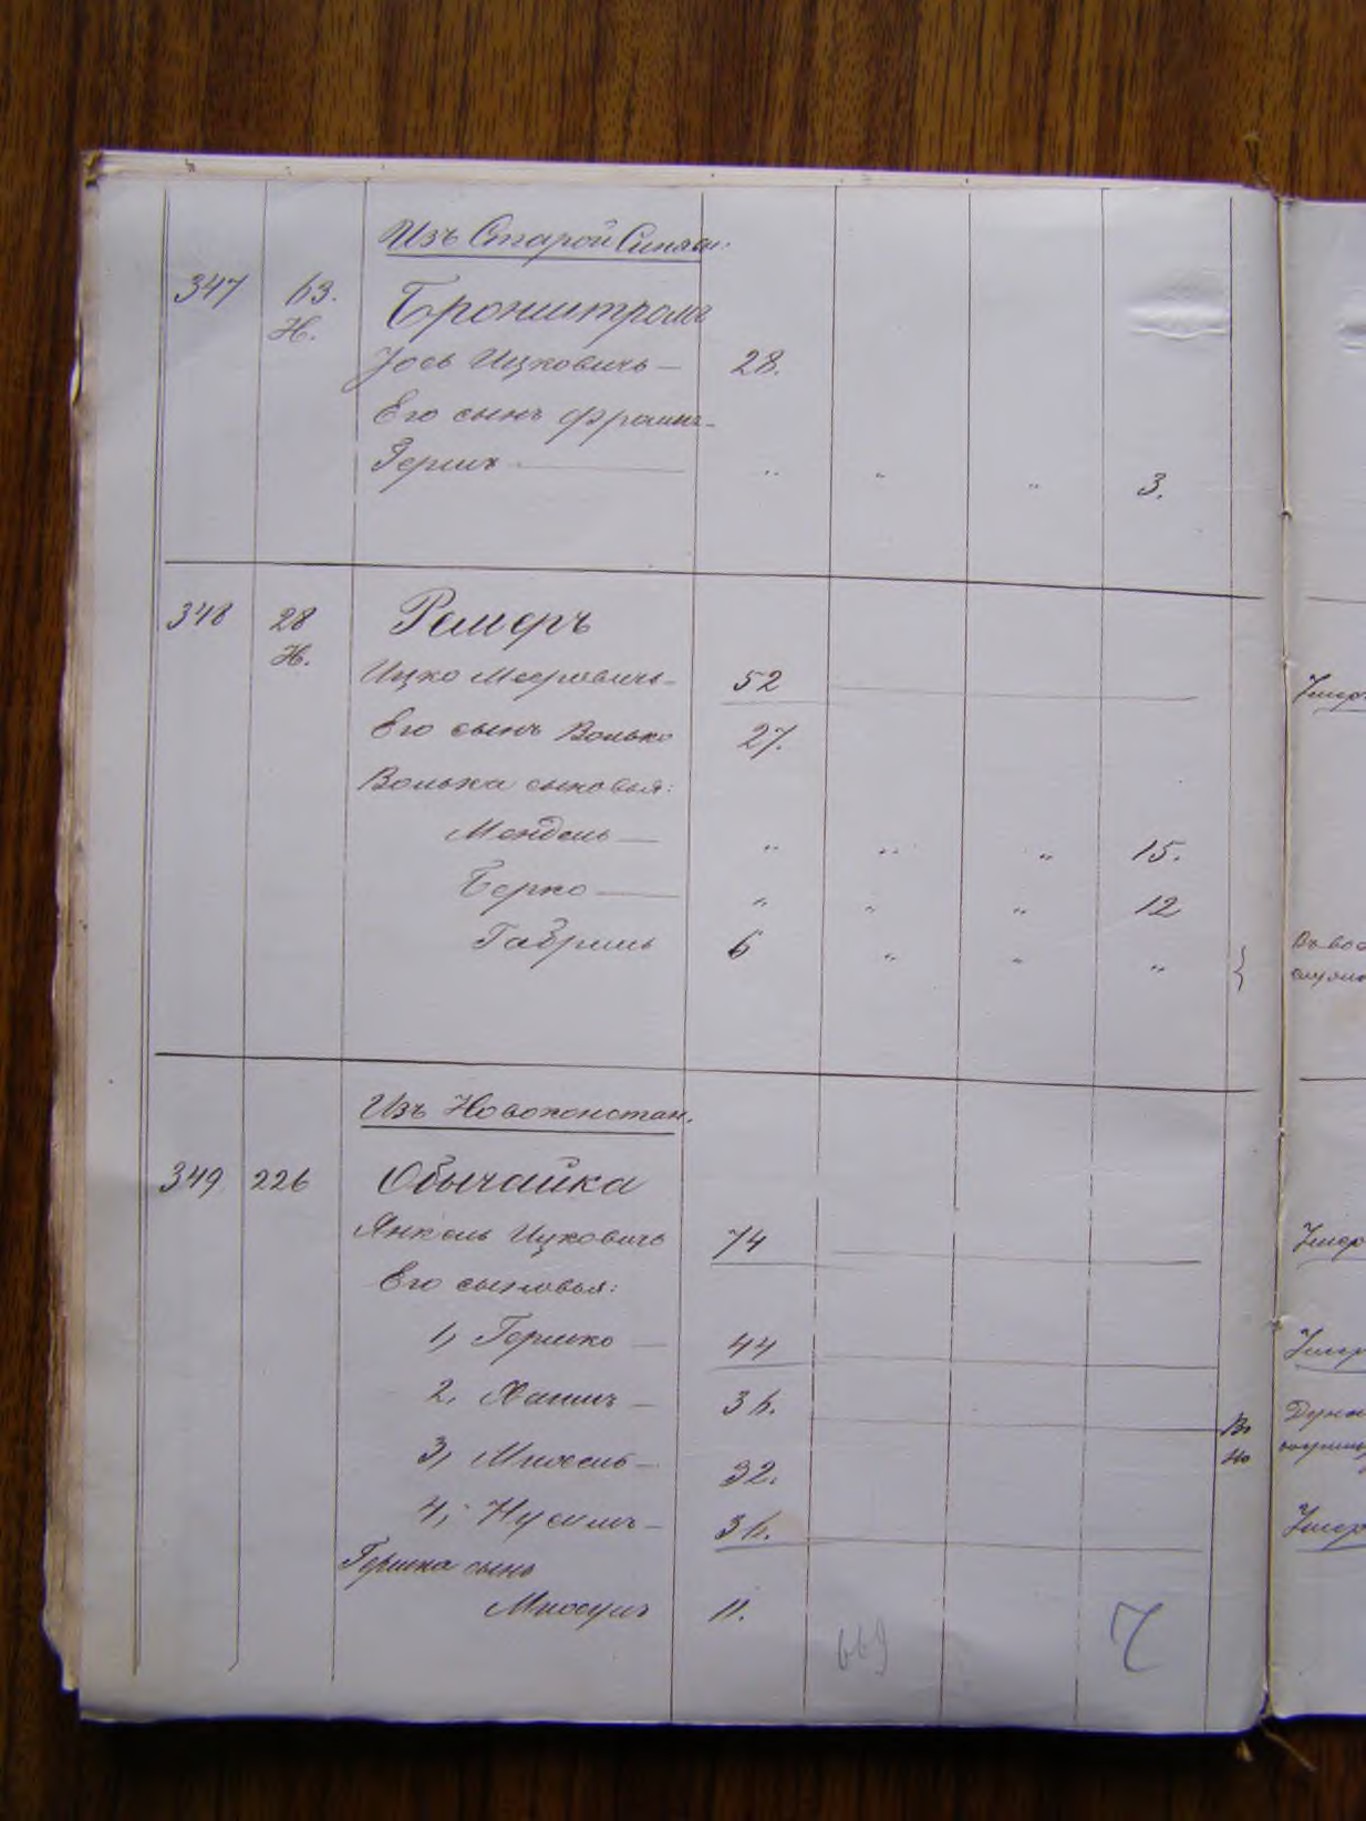 Изъ Старой Синяв.
347 63. Бронштромъ
Н.
Іось Ицковичъ — 28.
Его сынъ Фроимъ-
Герихъ — „ „ „ 3.
348 28 Ремеръ
Н.
Ицко Мееровичъ — 52
Его сынъ Волько 27.
Волька сыновья:
Мендель — „ „ „ 15.
Берко — „ „ „ 12
Габриль 6 „ „ „
Изъ Новоконстан.
349 226 Обычайка
Янкель Ицковичъ 74
Его сыновья:
1, Гершко — 44
2, Хаимъ — 36.
3, Мносель — 32.
4, Нусимъ — 36.
Гершка сынъ
11.
669 7